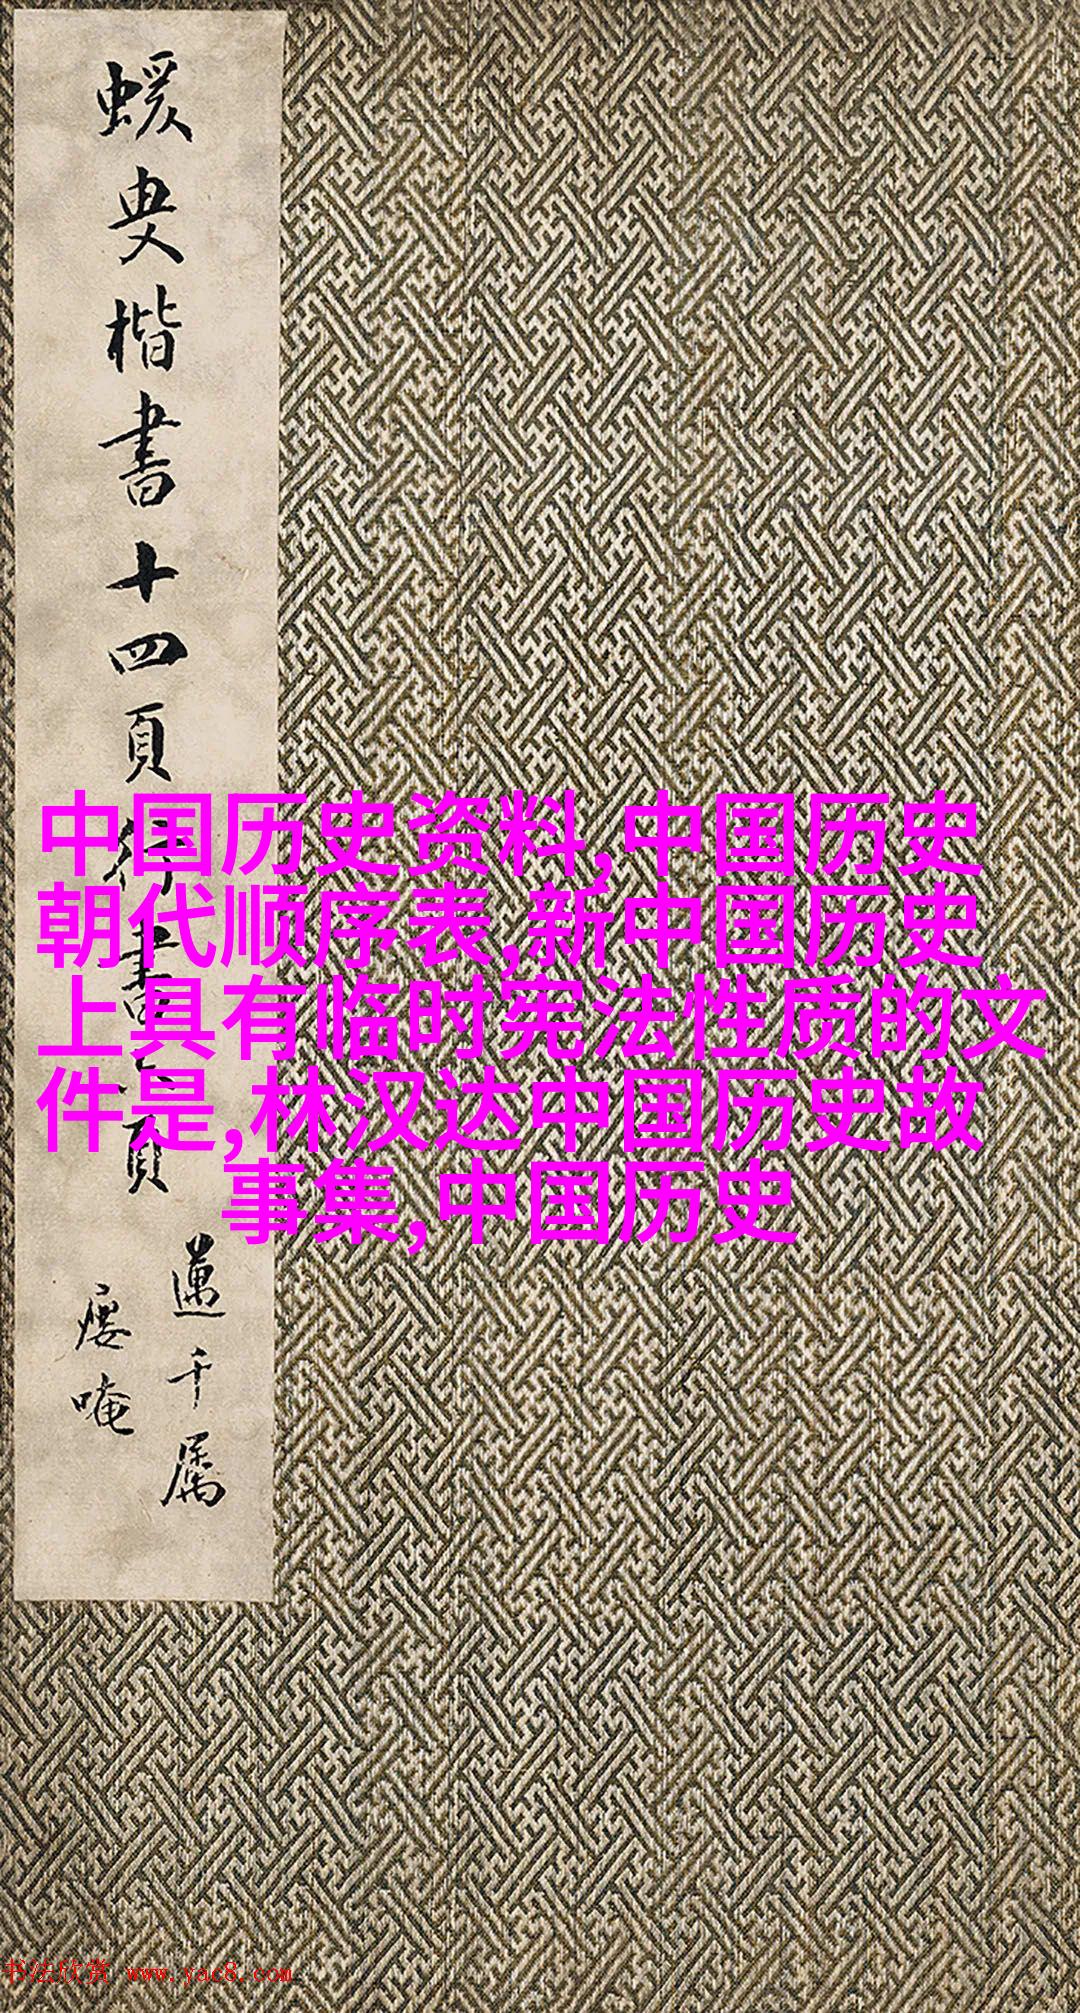 蝯叟楷書十四頁行書六頁
蘧千屬
廔唵
中国历史资料,中国历史
朝代顺序表,新中国历史
上具有临时宪法性质的文
件是,林汉达中国历史故
事集,中国历史
书法欣赏 www.yac8.com